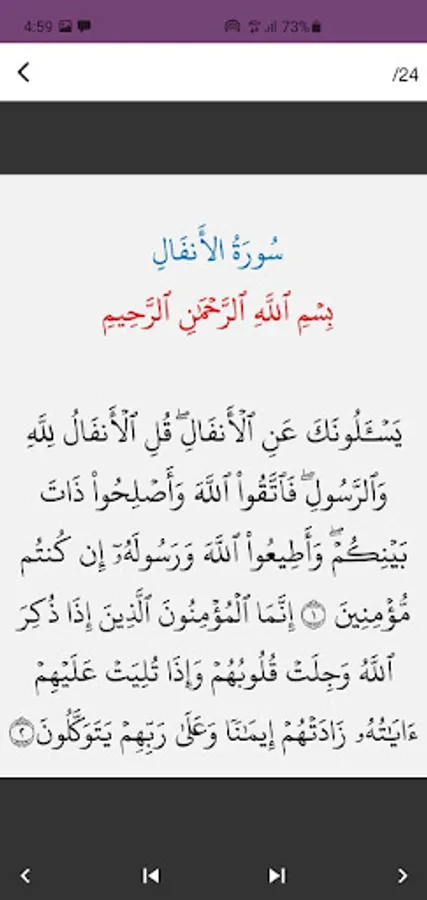 4:59
73%
/24
سُورَةُ الأَنفَالِ
بِسْمِ ٱللَّهِ ٱلرَّحْمَٰنِ ٱلرَّحِيمِ
يَسْـَٔلُونَكَ عَنِ ٱلْأَنفَالِ ۖ قُلِ ٱلْأَنفَالُ لِلَّهِ
وَٱلرَّسُولِ ۖ فَٱتَّقُوا۟ ٱللَّهَ وَأَصْلِحُوا۟ ذَاتَ
بَيْنِكُمْ ۖ وَأَطِيعُوا۟ ٱللَّهَ وَرَسُولَهُۥٓ إِن كُنتُم
مُّؤْمِنِينَ ۝١ إِنَّمَا ٱلْمُؤْمِنُونَ ٱلَّذِينَ إِذَا ذُكِرَ
ٱللَّهُ وَجِلَتْ قُلُوبُهُمْ وَإِذَا تُلِيَتْ عَلَيْهِمْ
ءَايَٰتُهُۥ زَادَتْهُمْ إِيمَٰنًا وَعَلَىٰ رَبِّهِمْ يَتَوَكَّلُونَ ۝٢